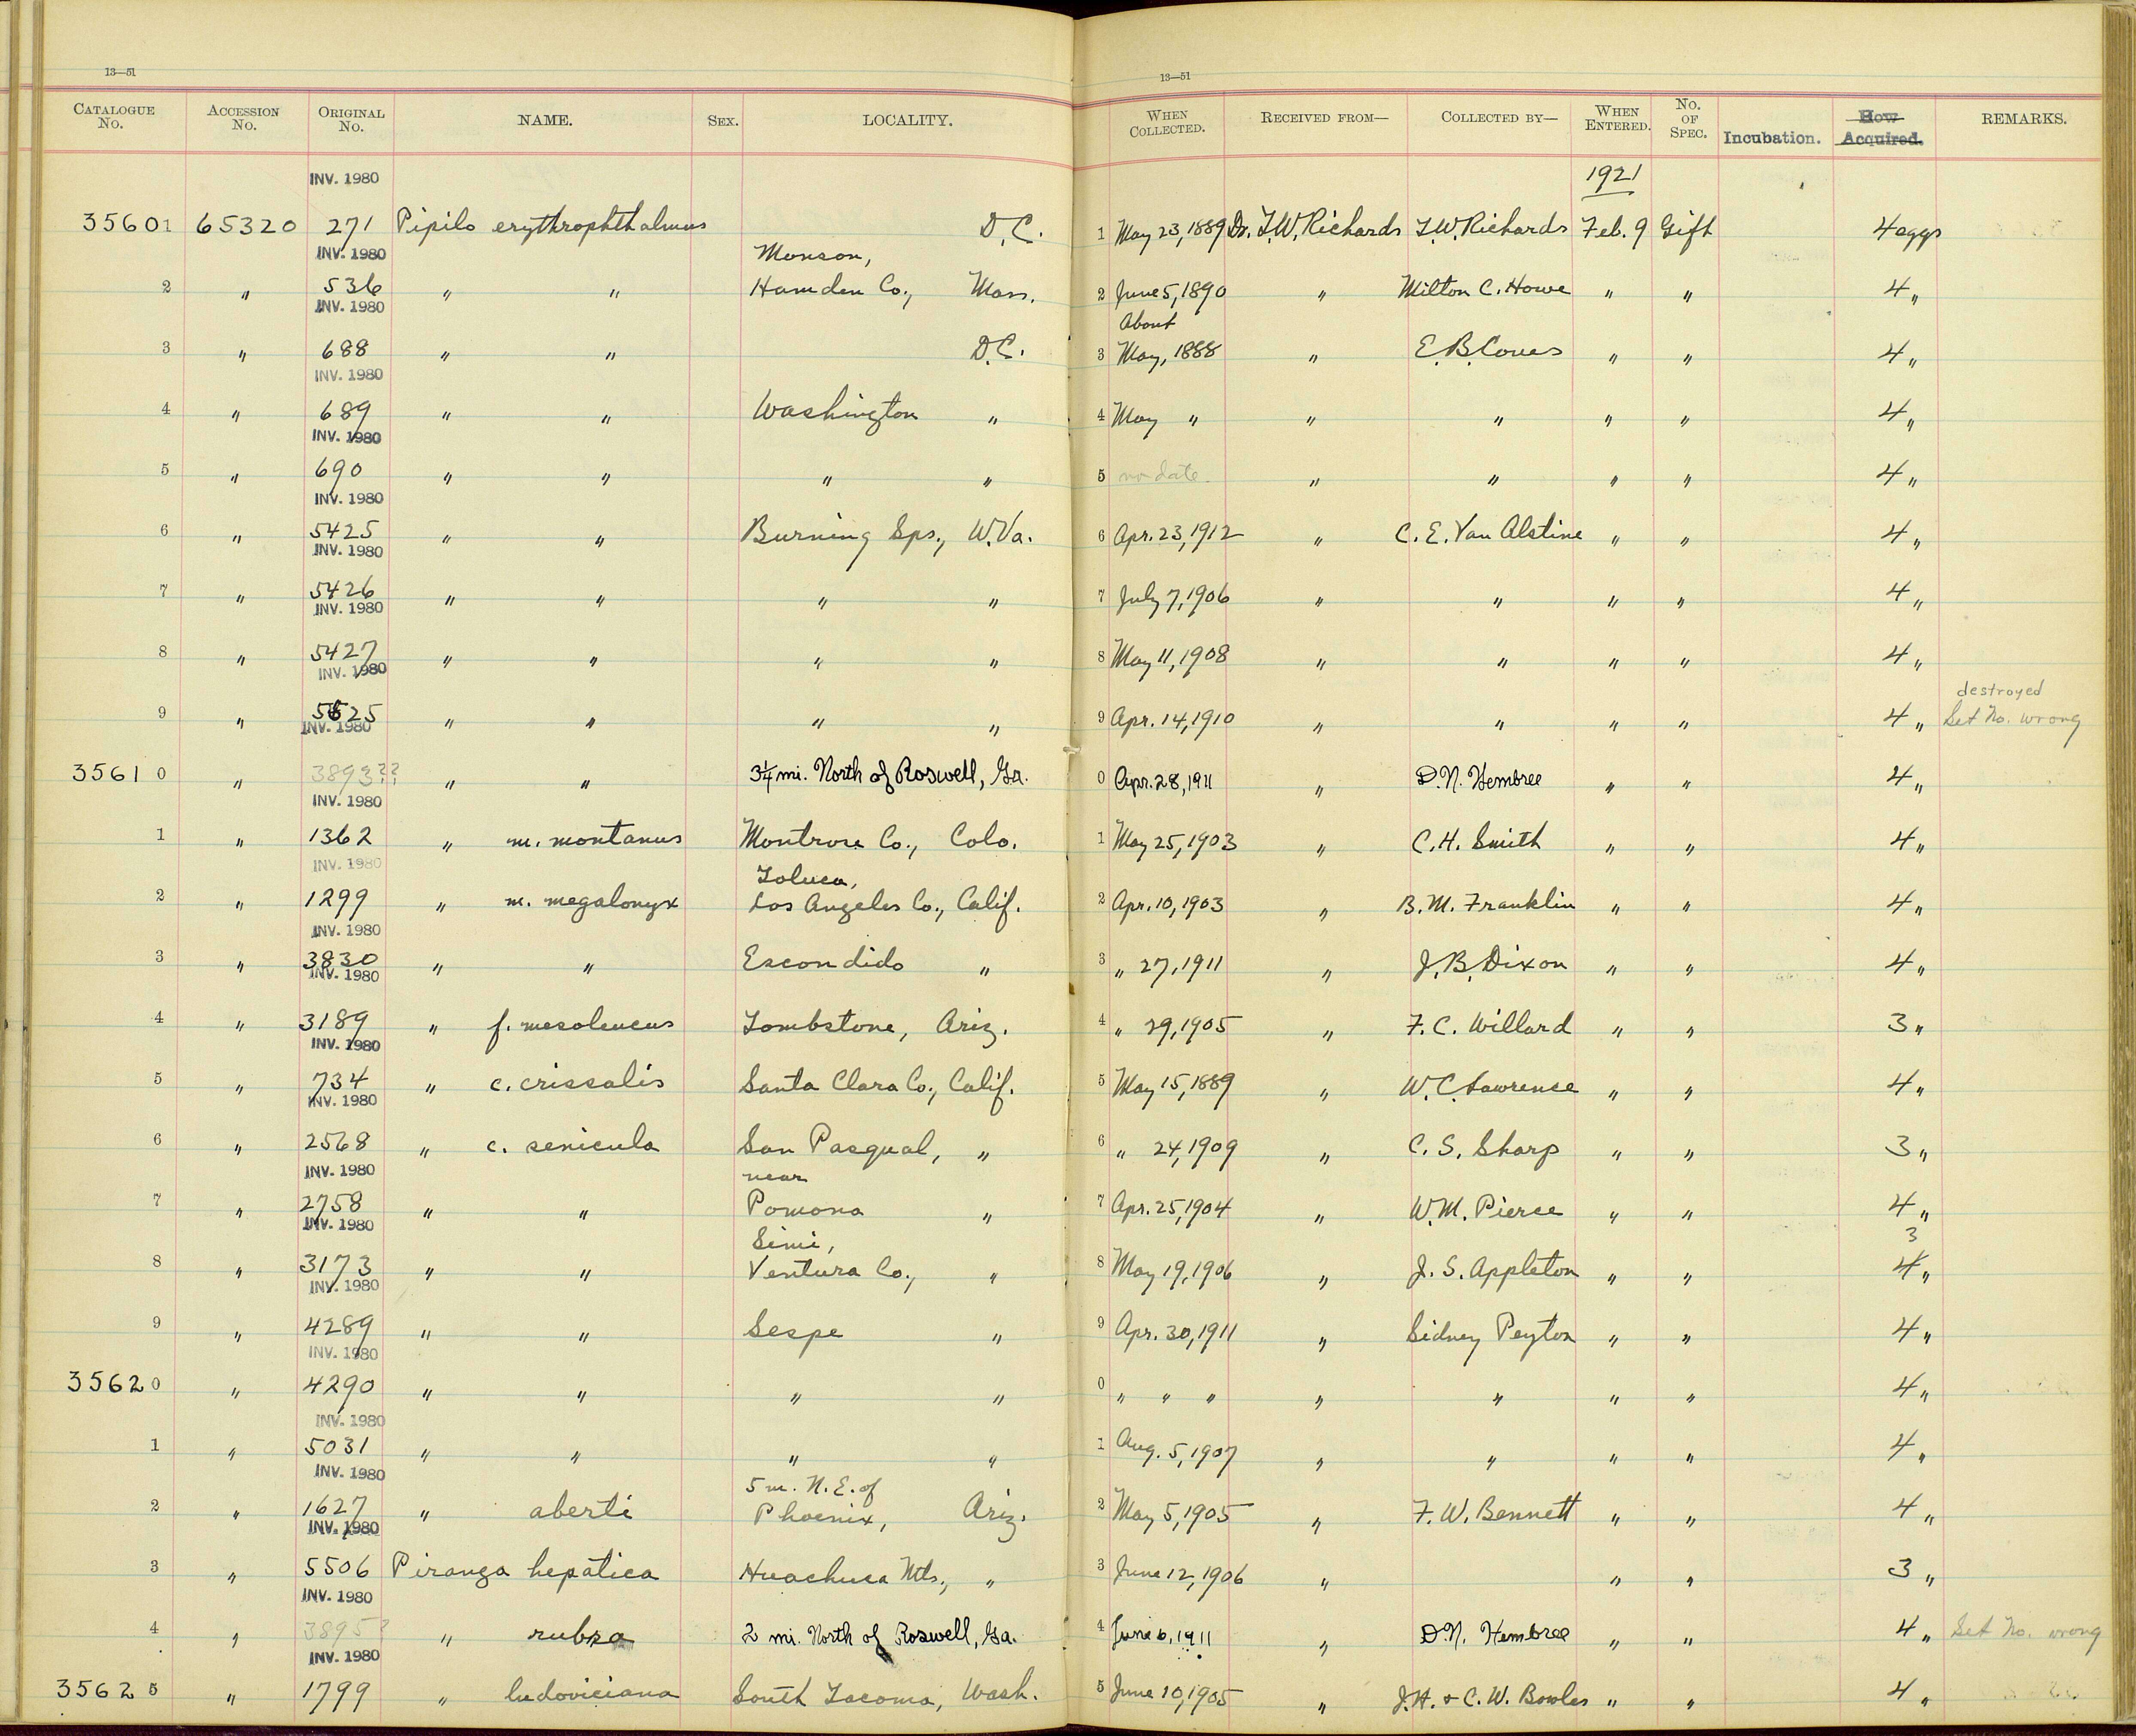 13—51 13—51
CATALOGUE No. ACCESSION No. ORIGINAL No. NAME. SEX. LOCALITY. WHEN COLLECTED. RECEIVED FROM— COLLECTED BY— WHEN ENTERED. No. OF SPEC. Incubation. How Acquired. REMARKS.
INV. 1980 1921
35601 65320 271 Pipilo erythrophthalmus D.C. 1 May 23, 1889 Dr. T.W. Richards T.W. Richards Feb. 9 Gift 4 eggs
INV. 1980 Monson,
2 " 536 " " Hamden Co., Mass. 2 June 5, 1890 " Milton C. Howe " " 4 "
INV. 1980 About
3 " 688 " " D.C. 3 May, 1888 " E.B. Coues " " 4 "
INV. 1980
4 " 689 " " Washington " 4 May " " " " " 4 "
INV. 1980
5 " 690 " " " " 5 no date " " " " 4 "
INV. 1980
6 " 5425 " " Burning Sps., W.Va. 6 Apr. 23, 1912 " C. E. Van Alstine " " 4 "
INV. 1980
7 " 5426 " " " " 7 July 7, 1906 " " " " 4 "
INV. 1980
8 " 5427 " " " " 8 May 11, 1908 " " " " 4 "
INV. 1980 destroyed
9 " 5625 " " " " 9 Apr. 14, 1910 " " " " 4 " Set No. wrong
INV. 1980
35610 " 3893?? " " 3¼ mi. North of Roswell, Ga. 0 Apr. 28, 1911 " D.N. Hembree " " 4 "
INV. 1980
1 " 1362 " m. montanus Montrose Co., Colo. 1 May 25, 1903 " C.H. Smith " " 4 "
INV. 1980 Toluca,
2 " 1299 " m. megalonyx Los Angeles Co., Calif. 2 Apr. 10, 1903 " B.M. Franklin " " 4 "
INV. 1980
3 " 3830 " " Escondido " 3 " 27, 1911 " J.B. Dixon " " 4 "
INV. 1980
4 " 3189 " f. mesoleucus Tombstone, Ariz. 4 " 29, 1905 " F.C. Willard " " 3 "
INV. 1980
5 " 734 " c. crissalis Santa Clara Co., Calif. 5 May 15, 1889 " W.C. Lawrence " " 4 "
INV. 1980
6 " 2568 " c. senicula San Pasqual, " 6 " 24, 1909 " C.S. Sharp " " 3 "
INV. 1980 near
7 " 2758 " " Pomona " 7 Apr. 25, 1904 " W.M. Pierce " " 4 "
INV. 1980 Simi, 3
8 " 3173 " " Ventura Co., " 8 May 19, 1906 " J.S. Appleton " " 4 "
INV. 1980
9 " 4289 " " Sespe " 9 Apr. 30, 1911 " Sidney Peyton " " 4 "
INV. 1980
35620 " 4290 " " " " 0 " " " " " " " 4 "
INV. 1980
1 " 5031 " " " " 1 Aug. 5, 1907 " " " " 4 "
INV. 1980 5 m. N.E. of
2 " 1627 " aberti Phoenix, Ariz. 2 May 5, 1905 " F.W. Bennett " " 4 "
INV. 1980
3 " 5506 Piranga hepatica Huachuca Mts., " 3 June 12, 1906 " " " 3 "
INV. 1980
4 " 3895? " rubra 2 mi. North of Roswell, Ga. 4 June 6, 1911 " D.N. Hembree " " 4 " Set No. wrong
INV. 1980
35625 " 1799 " ludoviciana South Tacoma, Wash. 5 June 10, 1905 " J.H. & C.W. Bowles " " 4 "